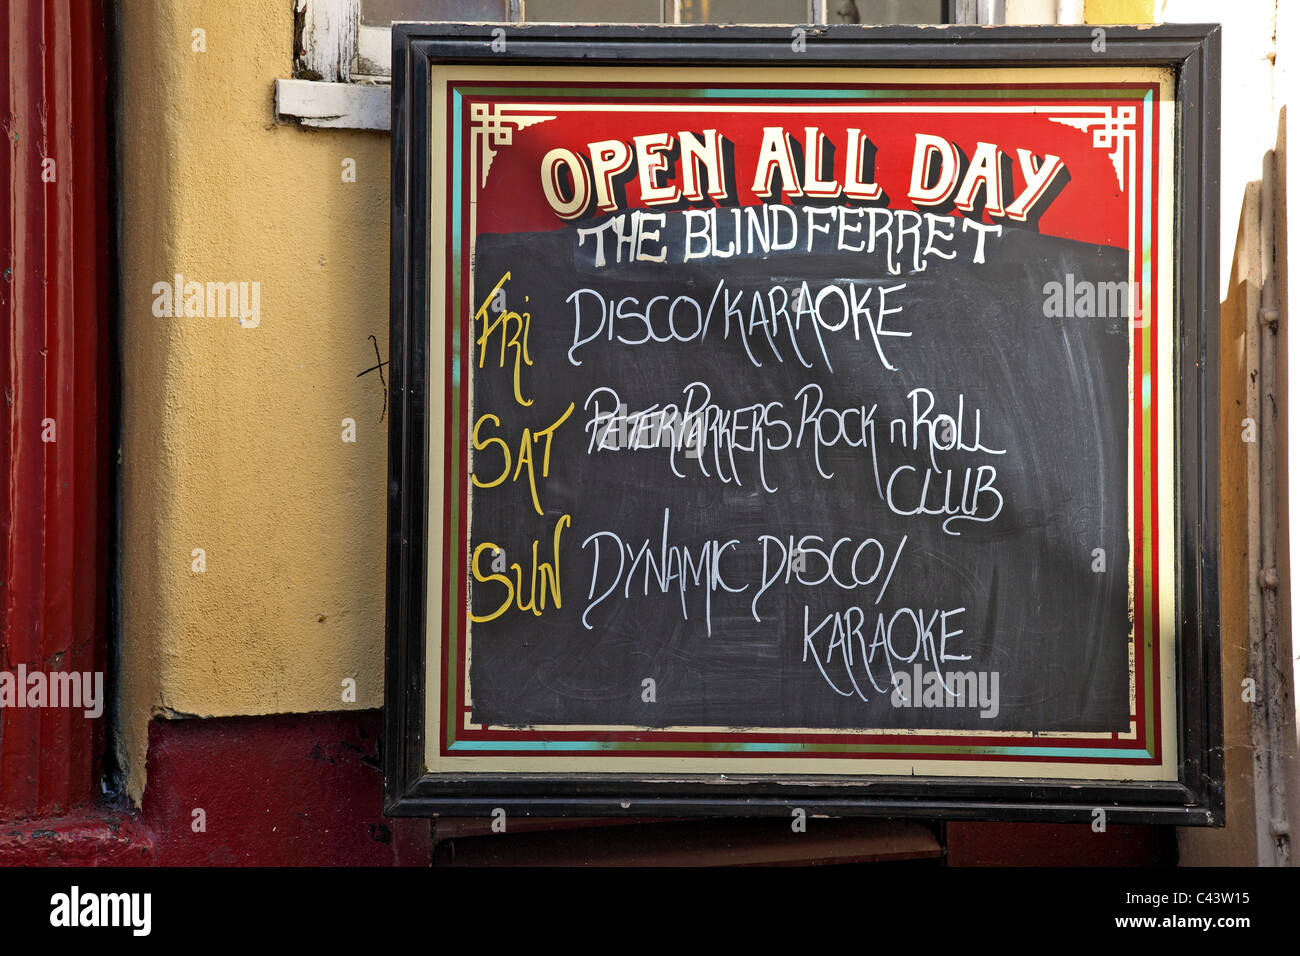 OPEN ALL DAY
THE BLIND FERRET
FRI DISCO/KARAOKE
SAT PETER PARKERS ROCK n ROLL
CLUB
SUN DYNAMIC DISCO/
KARAOKE
alamy
Image ID: C43W15
www.alamy.com